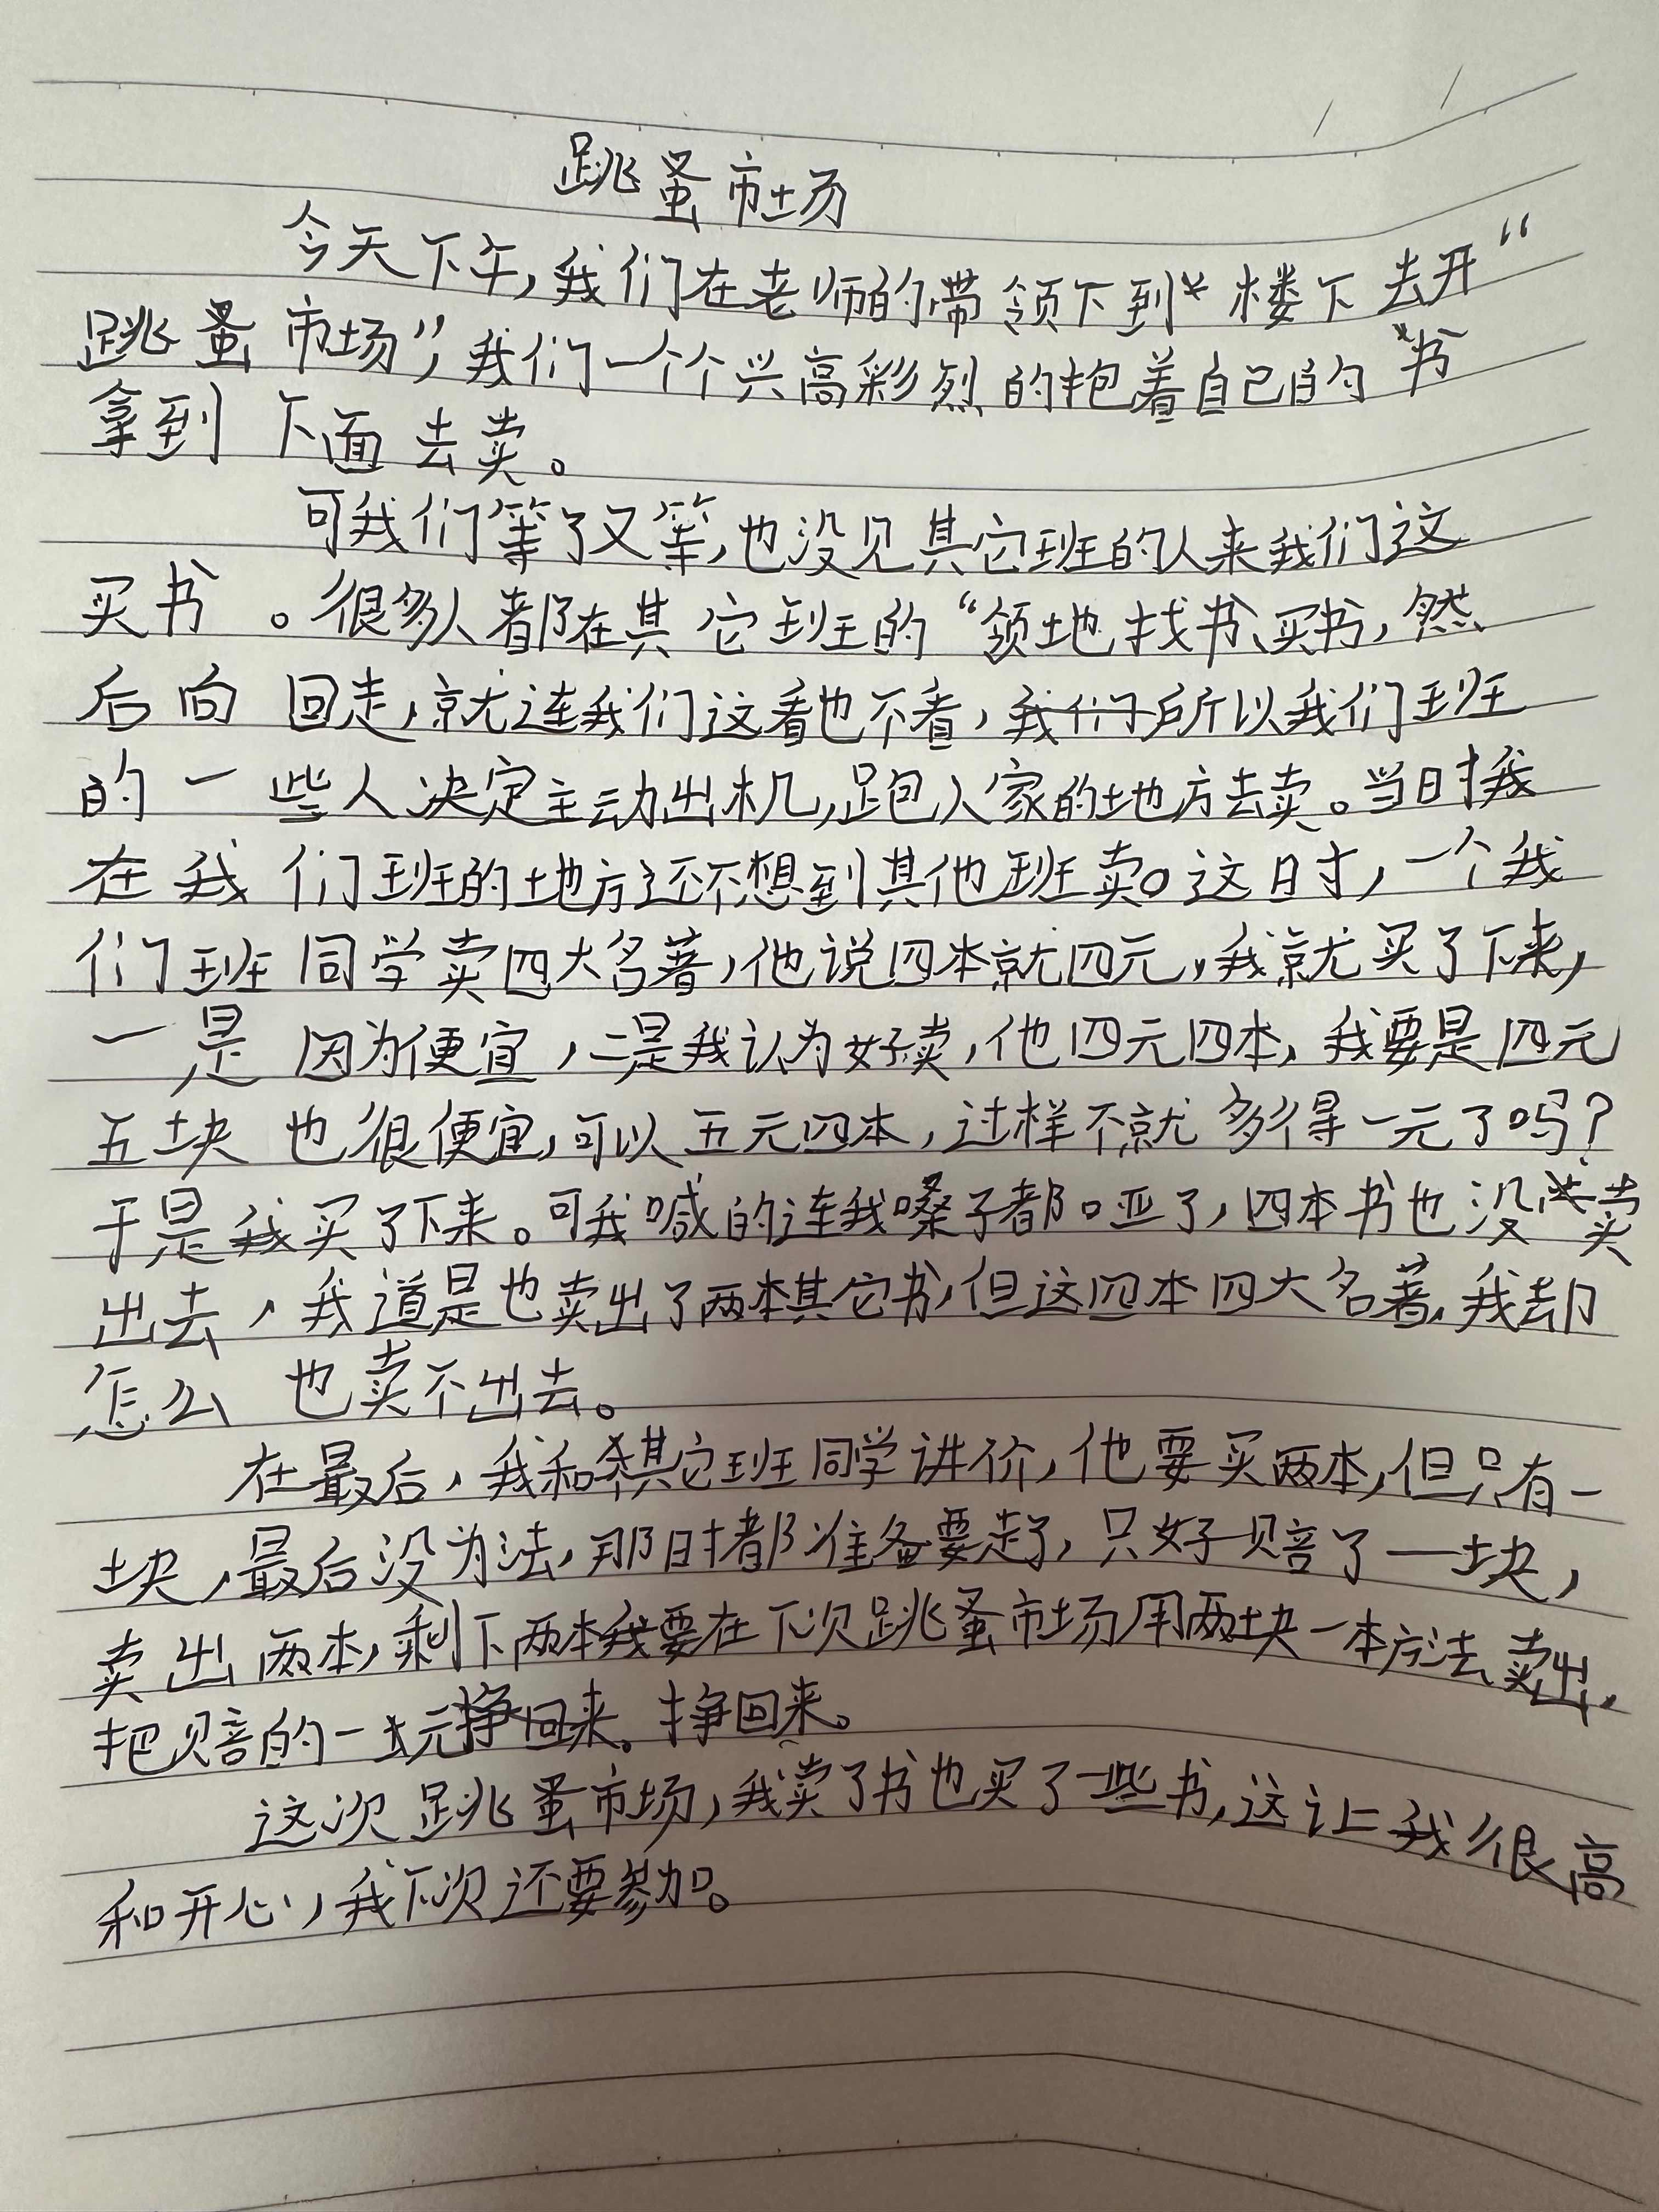 跳蚤市场
今天下午,我们在老师的带领下到楼下去开“
跳蚤市场”,我们一个个兴高彩烈的抱着自己的书
拿到下面去卖。
可我们等了又等,也没见其它班的人来我们这
买书。很多人都在其它班的“领地找书、买书,然
后向回走,就连我们这看也不看,我们所以我们班
的一些人决定主动出机,跑人家的地方去卖。当时我
在我们班的地方还不想到其他班卖。这时,一个我
们班同学卖四大名著,他说四本就四元,我就买了下来,
一是因为便宜,二是我认为好卖,他四元四本,我要是四元
五块也很便宜,可以五元四本,过样不就多得一元了吗?
于是我买了下来。可我喊的连我嗓子都哑了,四本书也没卖
出去,我道是也卖出了两本其它书,但这四本四大名著,我却
怎么也卖不出去。
在最后,我和其它班同学讲价,他要买两本,但只有一
块,最后没为法,那时都准备要走了,只好赔了一块,
卖出两本,剩下两本我要在下次跳蚤市场用两块一本方法卖出,
把赔的一元挣回来。挣回来。
这次跳蚤市场,我卖了书也买了一些书,这让我很高
和开心,我下次还要参加。